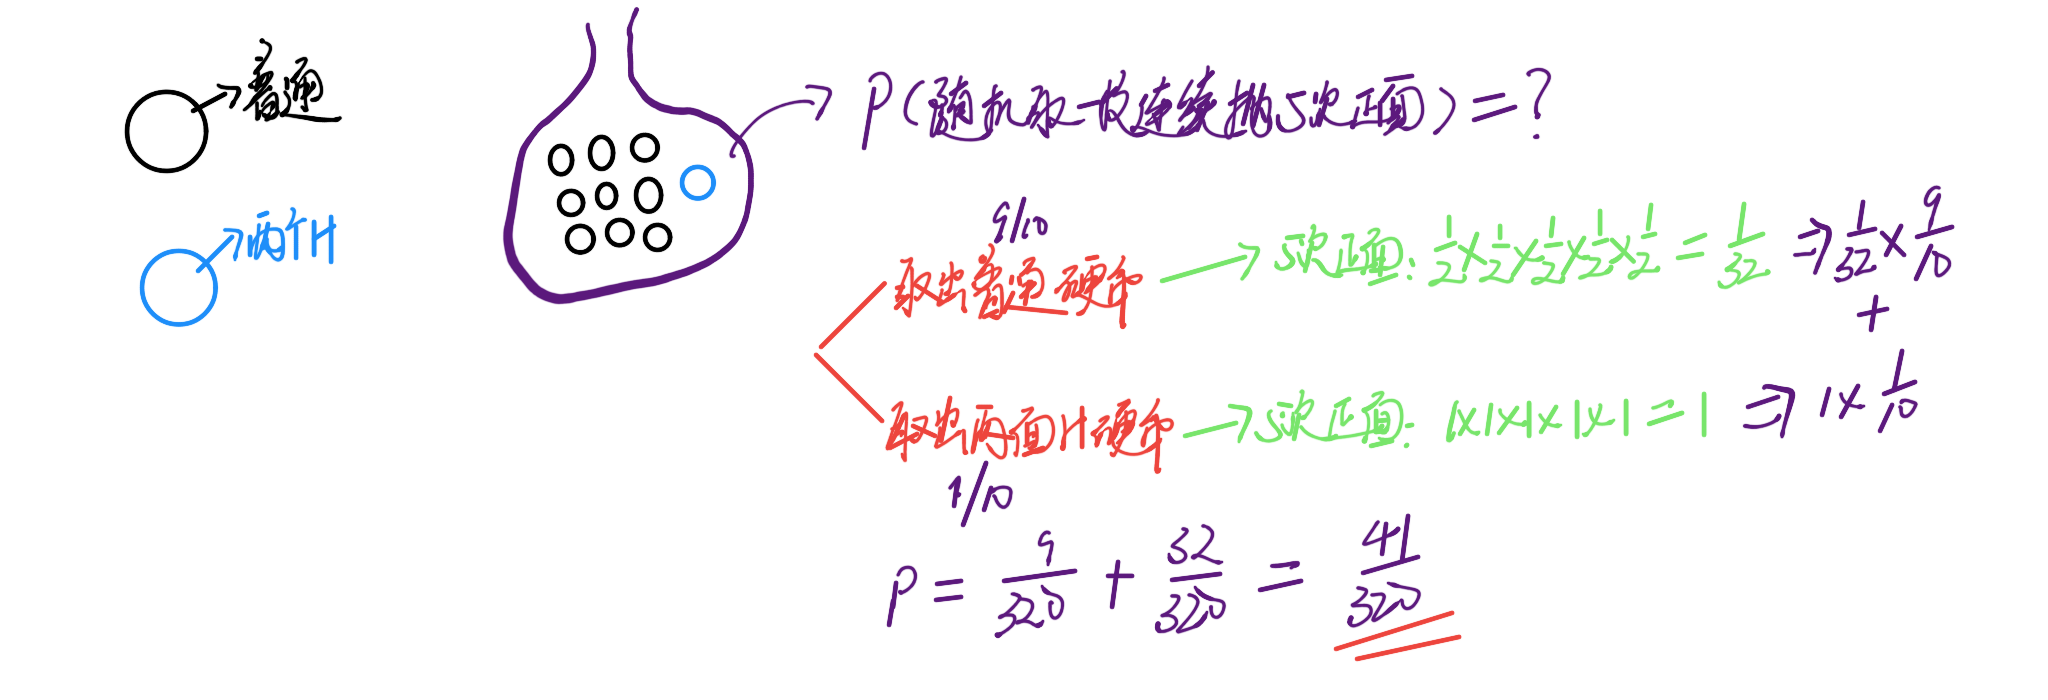 普通
两个H
P(随机取一枚连续抛5次正面)=?
9/10
取出普通硬币 → 5次正面: 1/2×1/2×1/2×1/2×1/2 = 1/32 ⇒ 1/32 × 9/10
+
取出两面H硬币 → 5次正面: 1×1×1×1×1 = 1 ⇒ 1× 1/10
1/10
P = 9/320 + 32/320 = 41/320